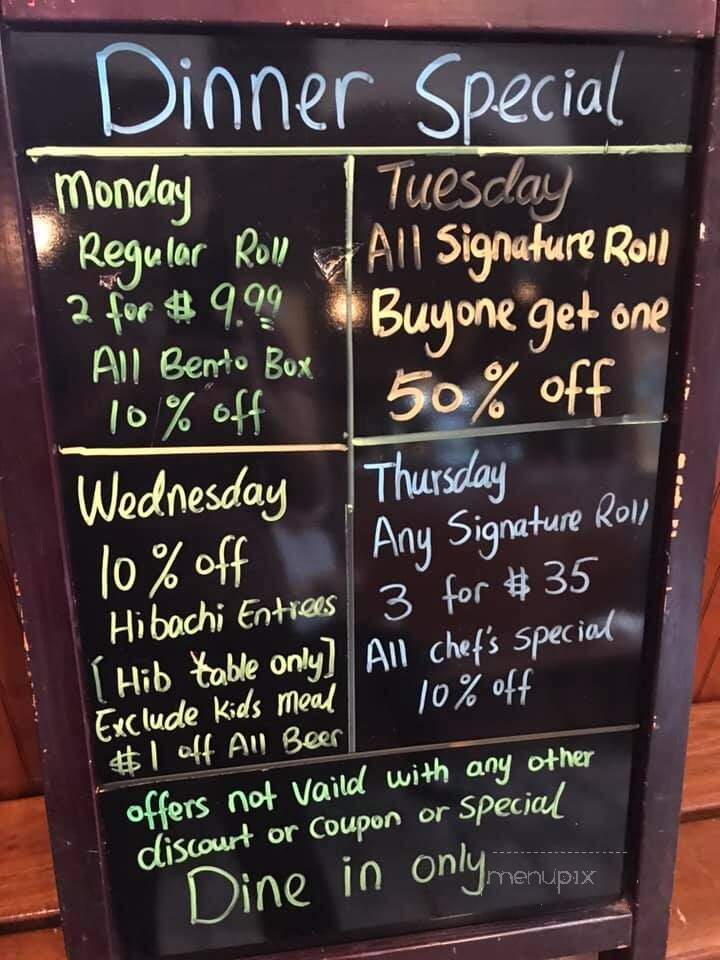 Dinner Special
Monday
Regular Roll
2 for $ 9.99
All Bento Box
10% off
Tuesday
All Signature Roll
Buyone get one
50% off
Wednesday
10% off
Hibachi Entrees
[Hib table only]
Exclude kids meal
$1 off All Beer
Thursday
Any Signature Roll
3 for $35
All chef's special
10% off
offers not Vaild with any other
discourt or Coupon or special
Dine in only
menupix